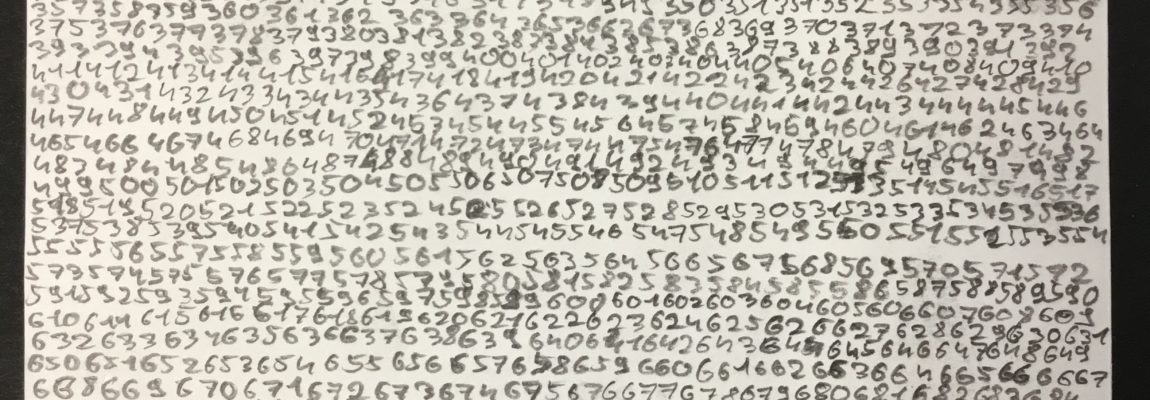 357358359360361362363364365366367368369370371372373374
375376377378379380381382383384385386387388389390391392
393394395396397398399400401402403404405406407408409410
411412413414415416417418419420421422423424426427428429
430431432433434435436437438439440441442443444445446
447448449450451452453454455456457458459460461462463464
465466467468469470471472473474475476477478479480481482
483484485486487488489490491492493494495496497498
499500501502503504505506507508509510511512513514515516517
518519520521522523524525526527528529530531532533534535536
537538539540541542543544545546547548549550551552553554
555556557558559560561562563564566567568569570571572
573574575576577578579580581582583584585586587588589590
591592593594595596597598599600601602603604605606607608609
610614615616617618619620621622623624625626627628629630631
632633634635636637638639640641642643644645646647648649
650651652653654655656657658659660661662663664665666667
668669670671672673674675676677678679680681682683684